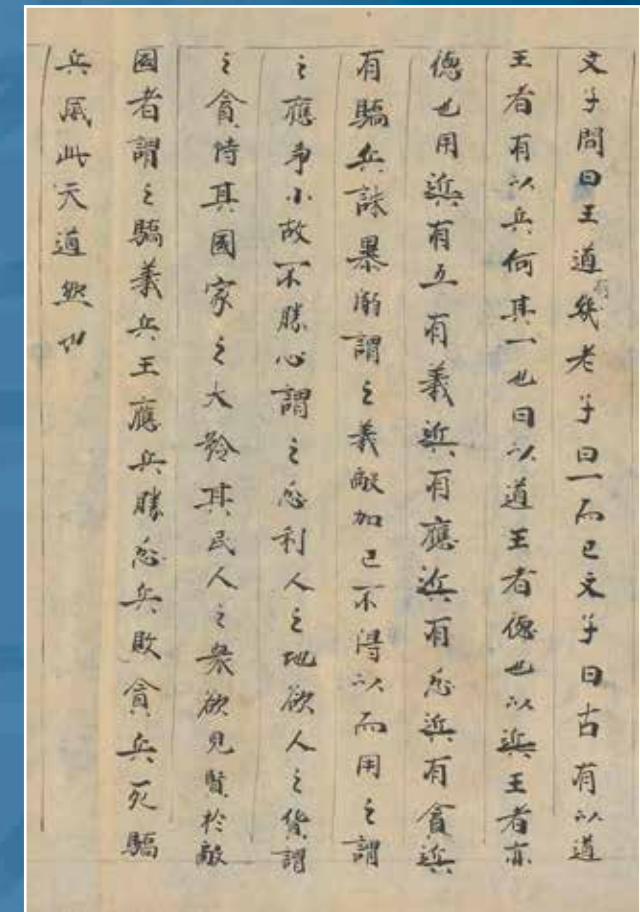 文子問曰王道幾老子曰一而已文子曰古有以道
王者有以兵何其一也曰以道王者德也以兵王者亦
德也用兵有五有義兵有應兵有忿兵有貪兵
有驕兵誅暴溺謂之義敵加己不得以而用之謂
之應爭小故不勝心謂之忿利人之地欲人之貨謂
之貪恃其國家之大矜其民人之衆欲見賢於敵
國者謂之驕義兵王應兵勝忿兵敗貪兵死驕
兵滅此天道然也